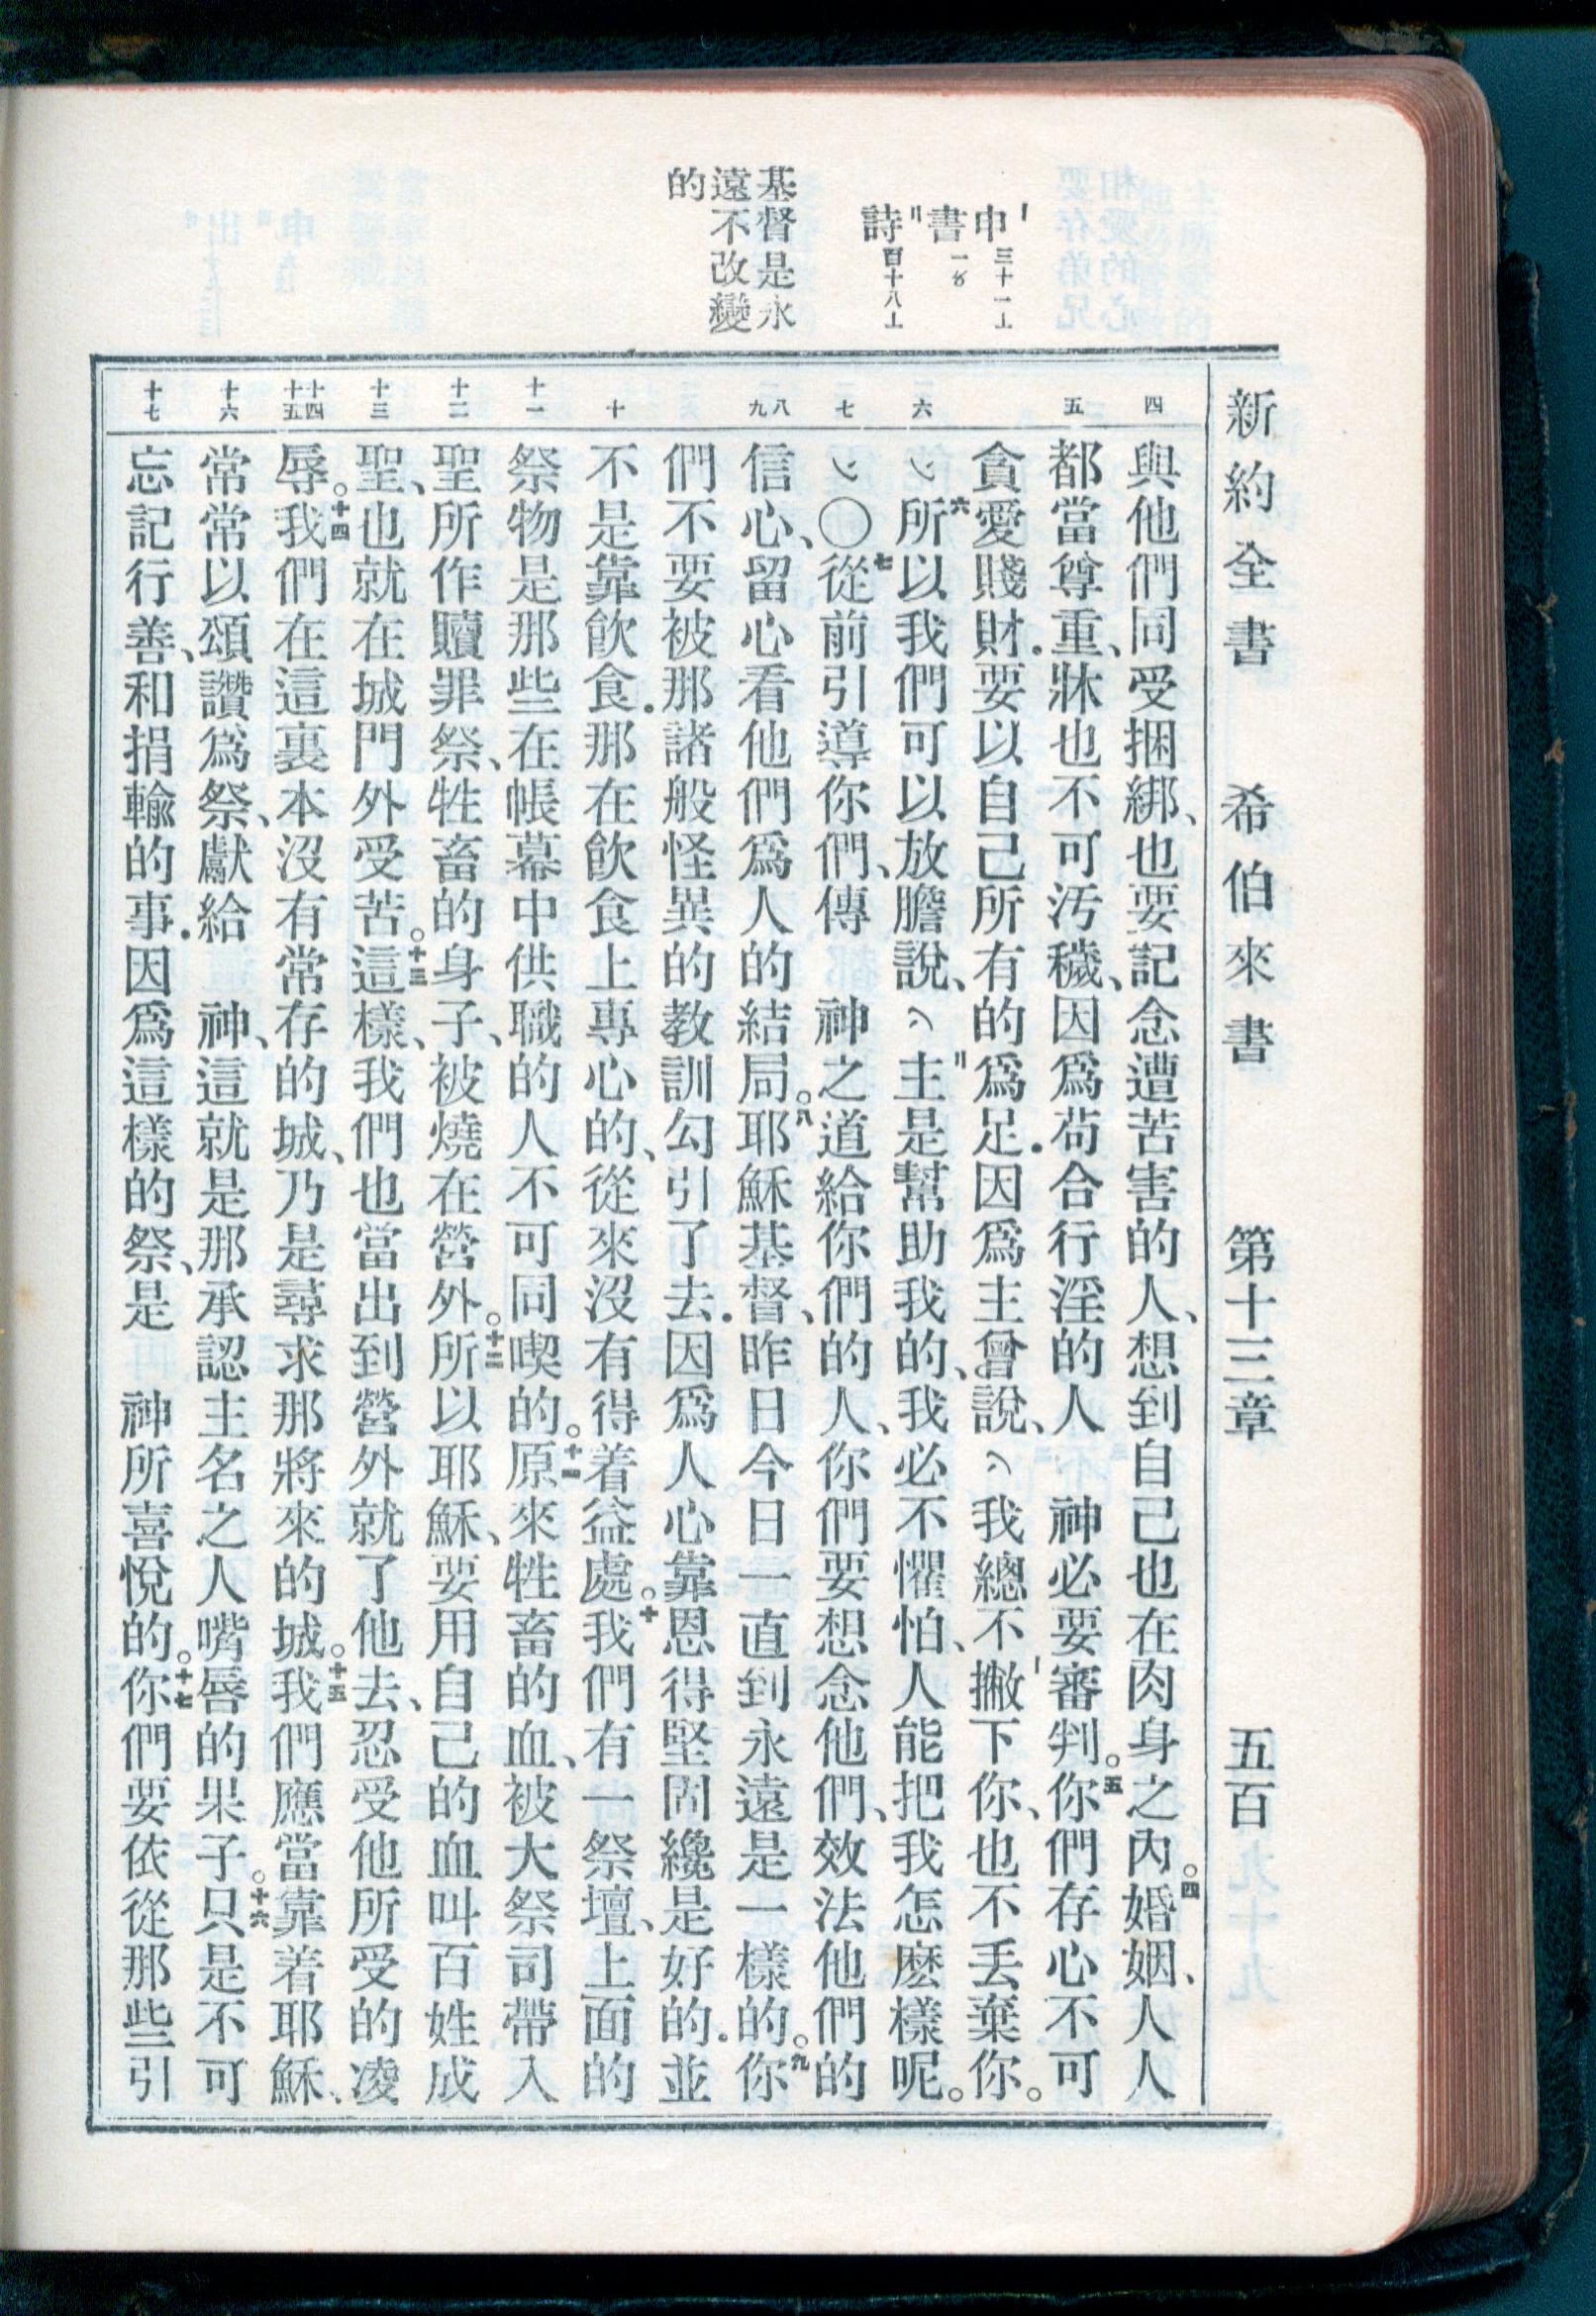 新約全書 希伯來書 第十三章 五百
申三十一
書一
詩百十八
基督是永
遠不改變
的
四
五
六
七
八
九
十
十一
十二
十三
十四
十五
十六
十七
與他們同受捆綁、也要記念遭苦害的人、想到自己也在肉身之內。四婚姻、人人
都當尊重、牀也不可污穢、因爲苟合行淫的人 神必要審判。五你們存心不可
貪愛賤財．要以自己所有的爲足．因爲主曾說、︵我總不撇下你、也不丟棄你。
︶六所以我們可以放膽說、︵主是幫助我的、我必不懼怕、人能把我怎麽樣呢。
︶〇七從前引導你們、傳 神之道給你們的人、你們要想念他們、效法他們的
信心、留心看他們爲人的結局。八耶穌基督、昨日今日一直到永遠是一樣的。九你
們不要被那諸般怪異的教訓勾引了去．因爲人心靠恩得堅固纔是好的．並
不是靠飲食．那在飲食上專心的、從來沒有得着益處。十我們有一祭壇、上面的
祭物是那些在帳幕中供職的人不可同喫的。十一原來牲畜的血、被大祭司帶入
聖所作贖罪祭、牲畜的身子、被燒在營外。十二所以耶穌、要用自己的血叫百姓成
聖、也就在城門外受苦。十三這樣、我們也當出到營外就了他去、忍受他所受的凌
辱。十四我們在這裏本沒有常存的城、乃是尋求那將來的城。十五我們應當靠着耶穌、
常常以頌讚爲祭、獻給 神、這就是那承認主名之人嘴唇的果子。十六只是不可
忘記行善、和捐輸的事．因爲這樣的祭、是 神所喜悅的。十七你們要依從那些引